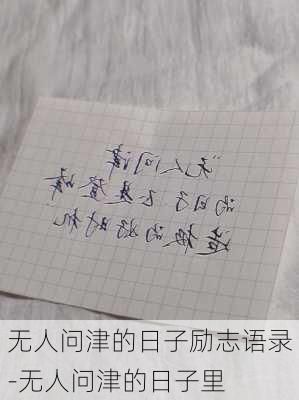 “无人问津
的日子正是登峰
造极的好时机
无人问津的日子励志语录
-无人问津的日子里